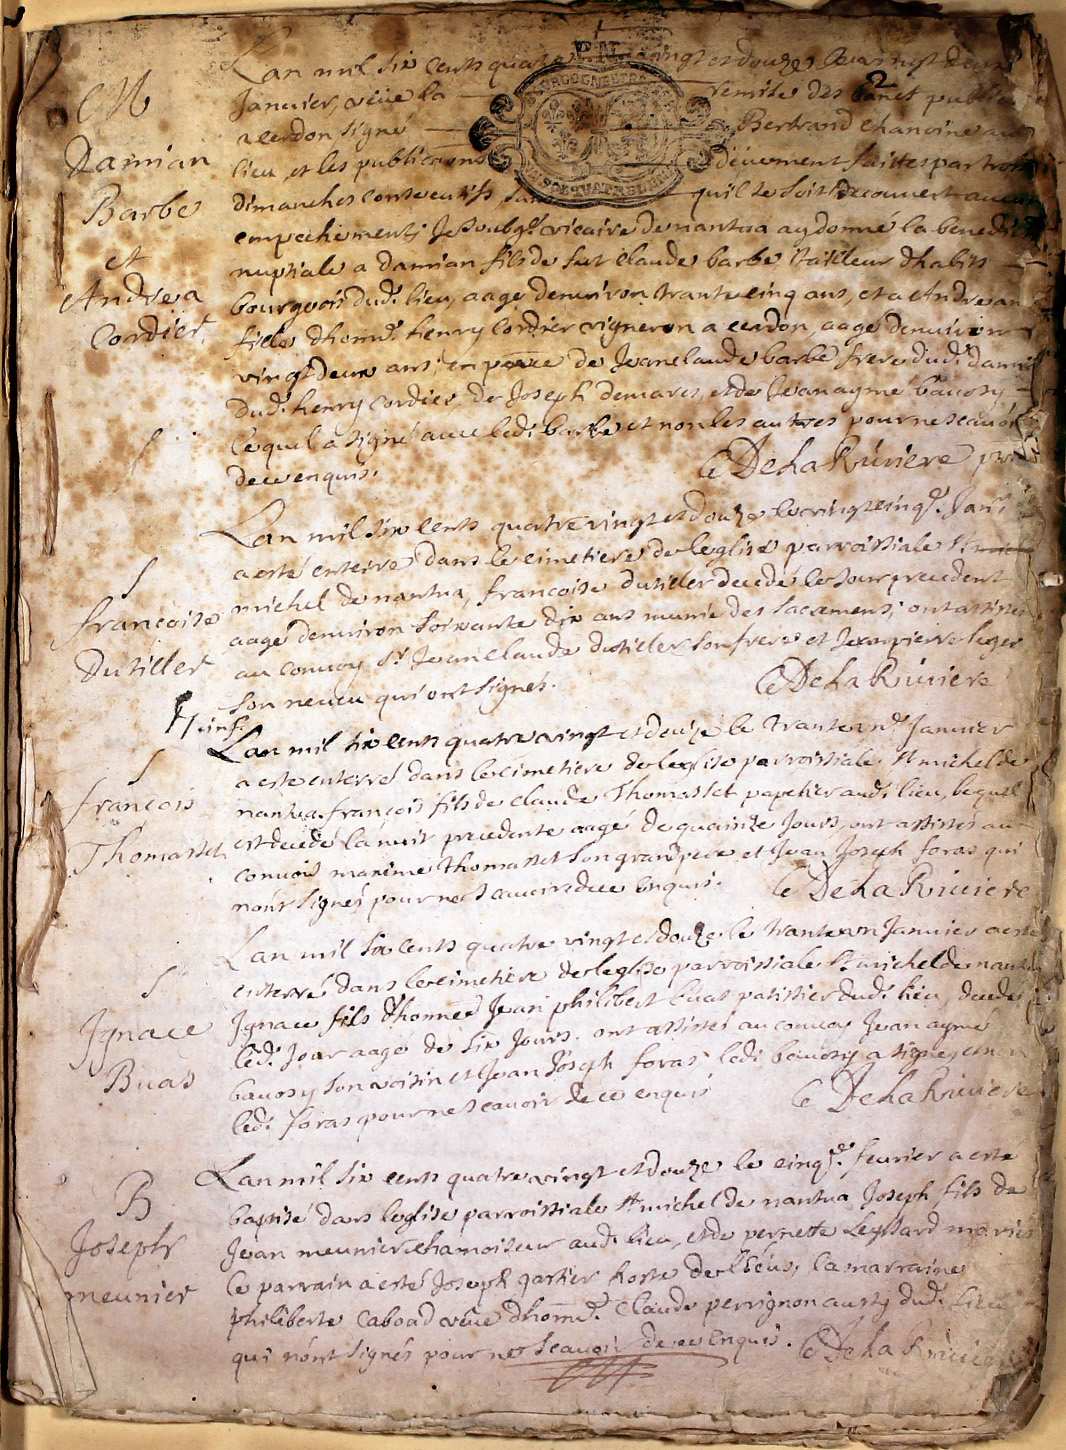 2
M
Damian
Barbe
et
Andrea
Cordier
Lan mil six cents quatre vingt et douze le vingt deux
Janvier, veüe la remise des bancs publiés
a cerdon signé Bertrand chanoine au
lieu, et les publications düement faittes par trois
dimanches consecutifs sans quil se soit decouvert aucun
empechement, Je soubsg.é vicaire de nantua ay donné la benedi
nuptiale a damian fils de feu Claude barbe tailleur dhabits
bourgeois dud. lieu, aagé denviron trante cinq ans, et a Andrea
fille dhon. henry Cordier vigneron a cerdon, aagé denviron
vingt deux ans, en pnce de Jean claude barbe frere dud. dami
dud. henry cordier, de Joseph demares, et de Jean aymé bavosy
lequel a signé avec led. barbe et non les autres pour ne scavoir
de ce enquis.
C Delariviere
S
françoise
Dutiller
Lan mil six cents quatre vingt et douze le vingt cinq. Janr
a esté enterré dans le cimetiere de leglise parroissiale St
michel de nantua, francoise dutiller decedé le jour precedent
aagé denviron soixante dix ans munie des sacemens; ont assistes
au convoy Sr. Jean Claude dutiler son frere et Jean pierre leger
son neveu qui ont signés.
C Delariviere
S
françois
Thomasset
Lan mil six cents quatre vingt et douze le trante un. Janvier
a esté enterré dans le cimetiere de leglise parroissiale St michel de
nantua françois fils de claude Thomasset papetier aud. lieu, lequel
est decedé la nuit precedente aagé de quainze Jours, ont assistés au
convois maxime thomasset son grand pere et Jean Joseph foras qui
nont signés pour ne scavoir de ce enquis.
C Delariviere
S
Ignace
Buas
Lan mil six cents quatre vingt et douze le trante un Janvier a esté
enterré dans le cimetiere de leglise parroissiale St michel de nantua
Ignace fils dhonne Jean philibert buas patissier dud. lieu, decedé
led. Jour aagé de six Jours. ont assistes au convoy Jean aymé
bavosy son voisin et Jean Joseph foras, led. bavosy a signé, et non
led. foras pour ne scavoir de ce enquis
C Delariviere
B
Joseph
meunier
Lan mil six cents quatre vingt et douze le cinq. fevrier a esté
baptisé dans leglise parroissiale St michel de nantua Joseph fils de
Jean meunier chamoiseur aud. lieu, et de pernette Leyssard mariés
le parrain a esté Joseph gartier hoste de, la marraine
philiberte caboad veuve dhon. Claude perrignon dud. lieu
qui nont signés pour ne scavoir de ce enquis.
C Delariviere